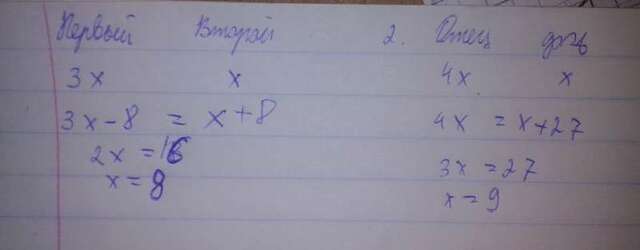 Первый Второй
3x x
3x - 8 = x + 8
2x = 16
x = 8
2. Отец дочь
4x x
4x = x + 27
3x = 27
x = 9